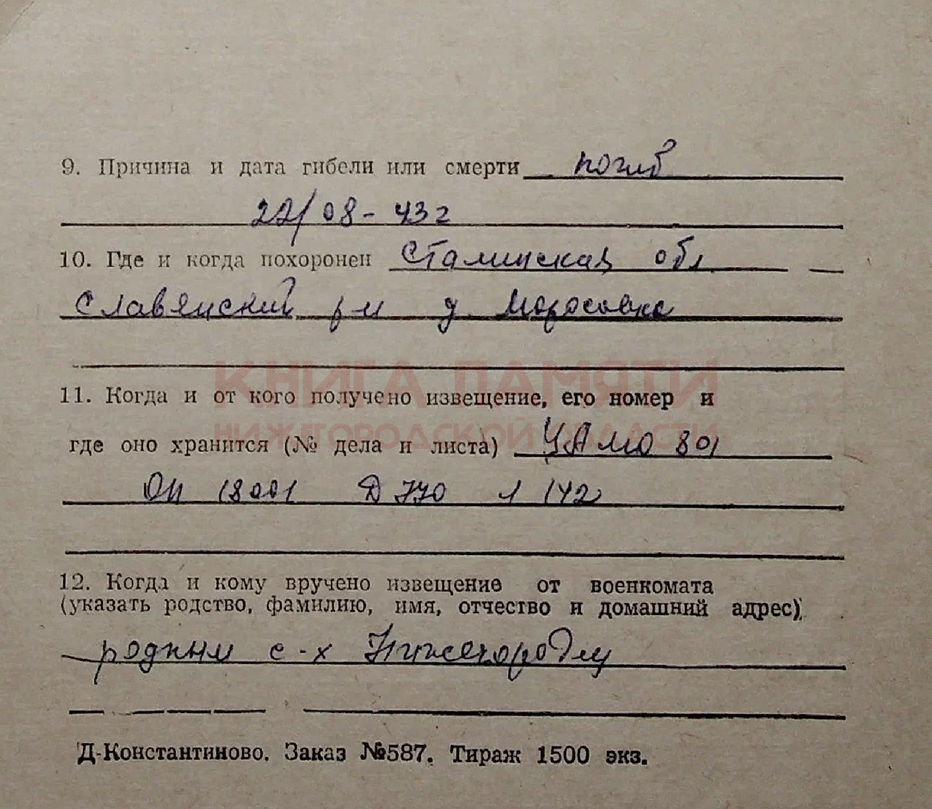 9. Причина и дата гибели или смерти погиб
22/08-43г
10. Где и когда похоронен Сталинская обл
Славянский р-н д. Моросовка
КНИГА ПАМЯТИ
11. Когда и от кого получено извещение, его номер и
НИЖЕГОРОДСКОЙ ОБЛАСТИ
где оно хранится (№ дела и листа) ЦАМО 801
ОП 18001 Д 770 л 142
12. Когда и кому вручено извещение от военкомата
(указать родство, фамилию, имя, отчество и домашний адрес)
родным с-х
Д-Константиново. Заказ №587. Тираж 1500 экз.